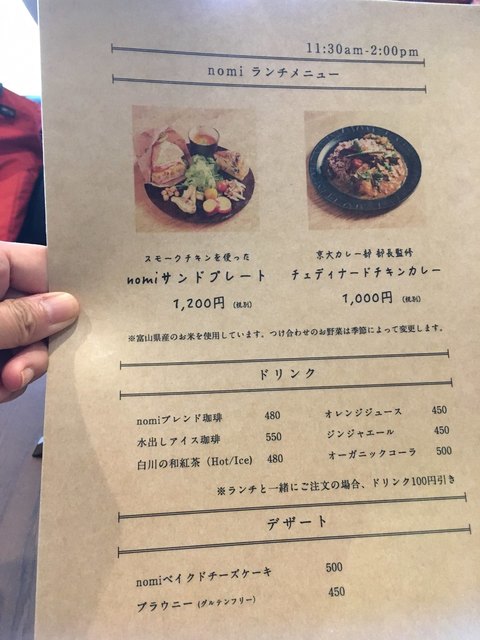 11:30am-2:00pm
nomi ランチメニュー
スモークチキンを使った
nomiサンドプレート
1,200円 (税別)
京大カレー部 部長監修
チェディナードチキンカレー
1,000円 (税別)
※富山県産のお米を使用しています。つけ合わせのお野菜は季節によって変更します。
ドリンク
nomiブレンド珈琲 480
水出しアイス珈琲 550
白川の和紅茶 (Hot/Ice) 480
オレンジジュース 450
ジンジャエール 450
オーガニックコーラ 500
※ランチと一緒にご注文の場合、ドリンク100円引き
デザート
nomiベイクドチーズケーキ 500
ブラウニー (グルテンフリー) 450